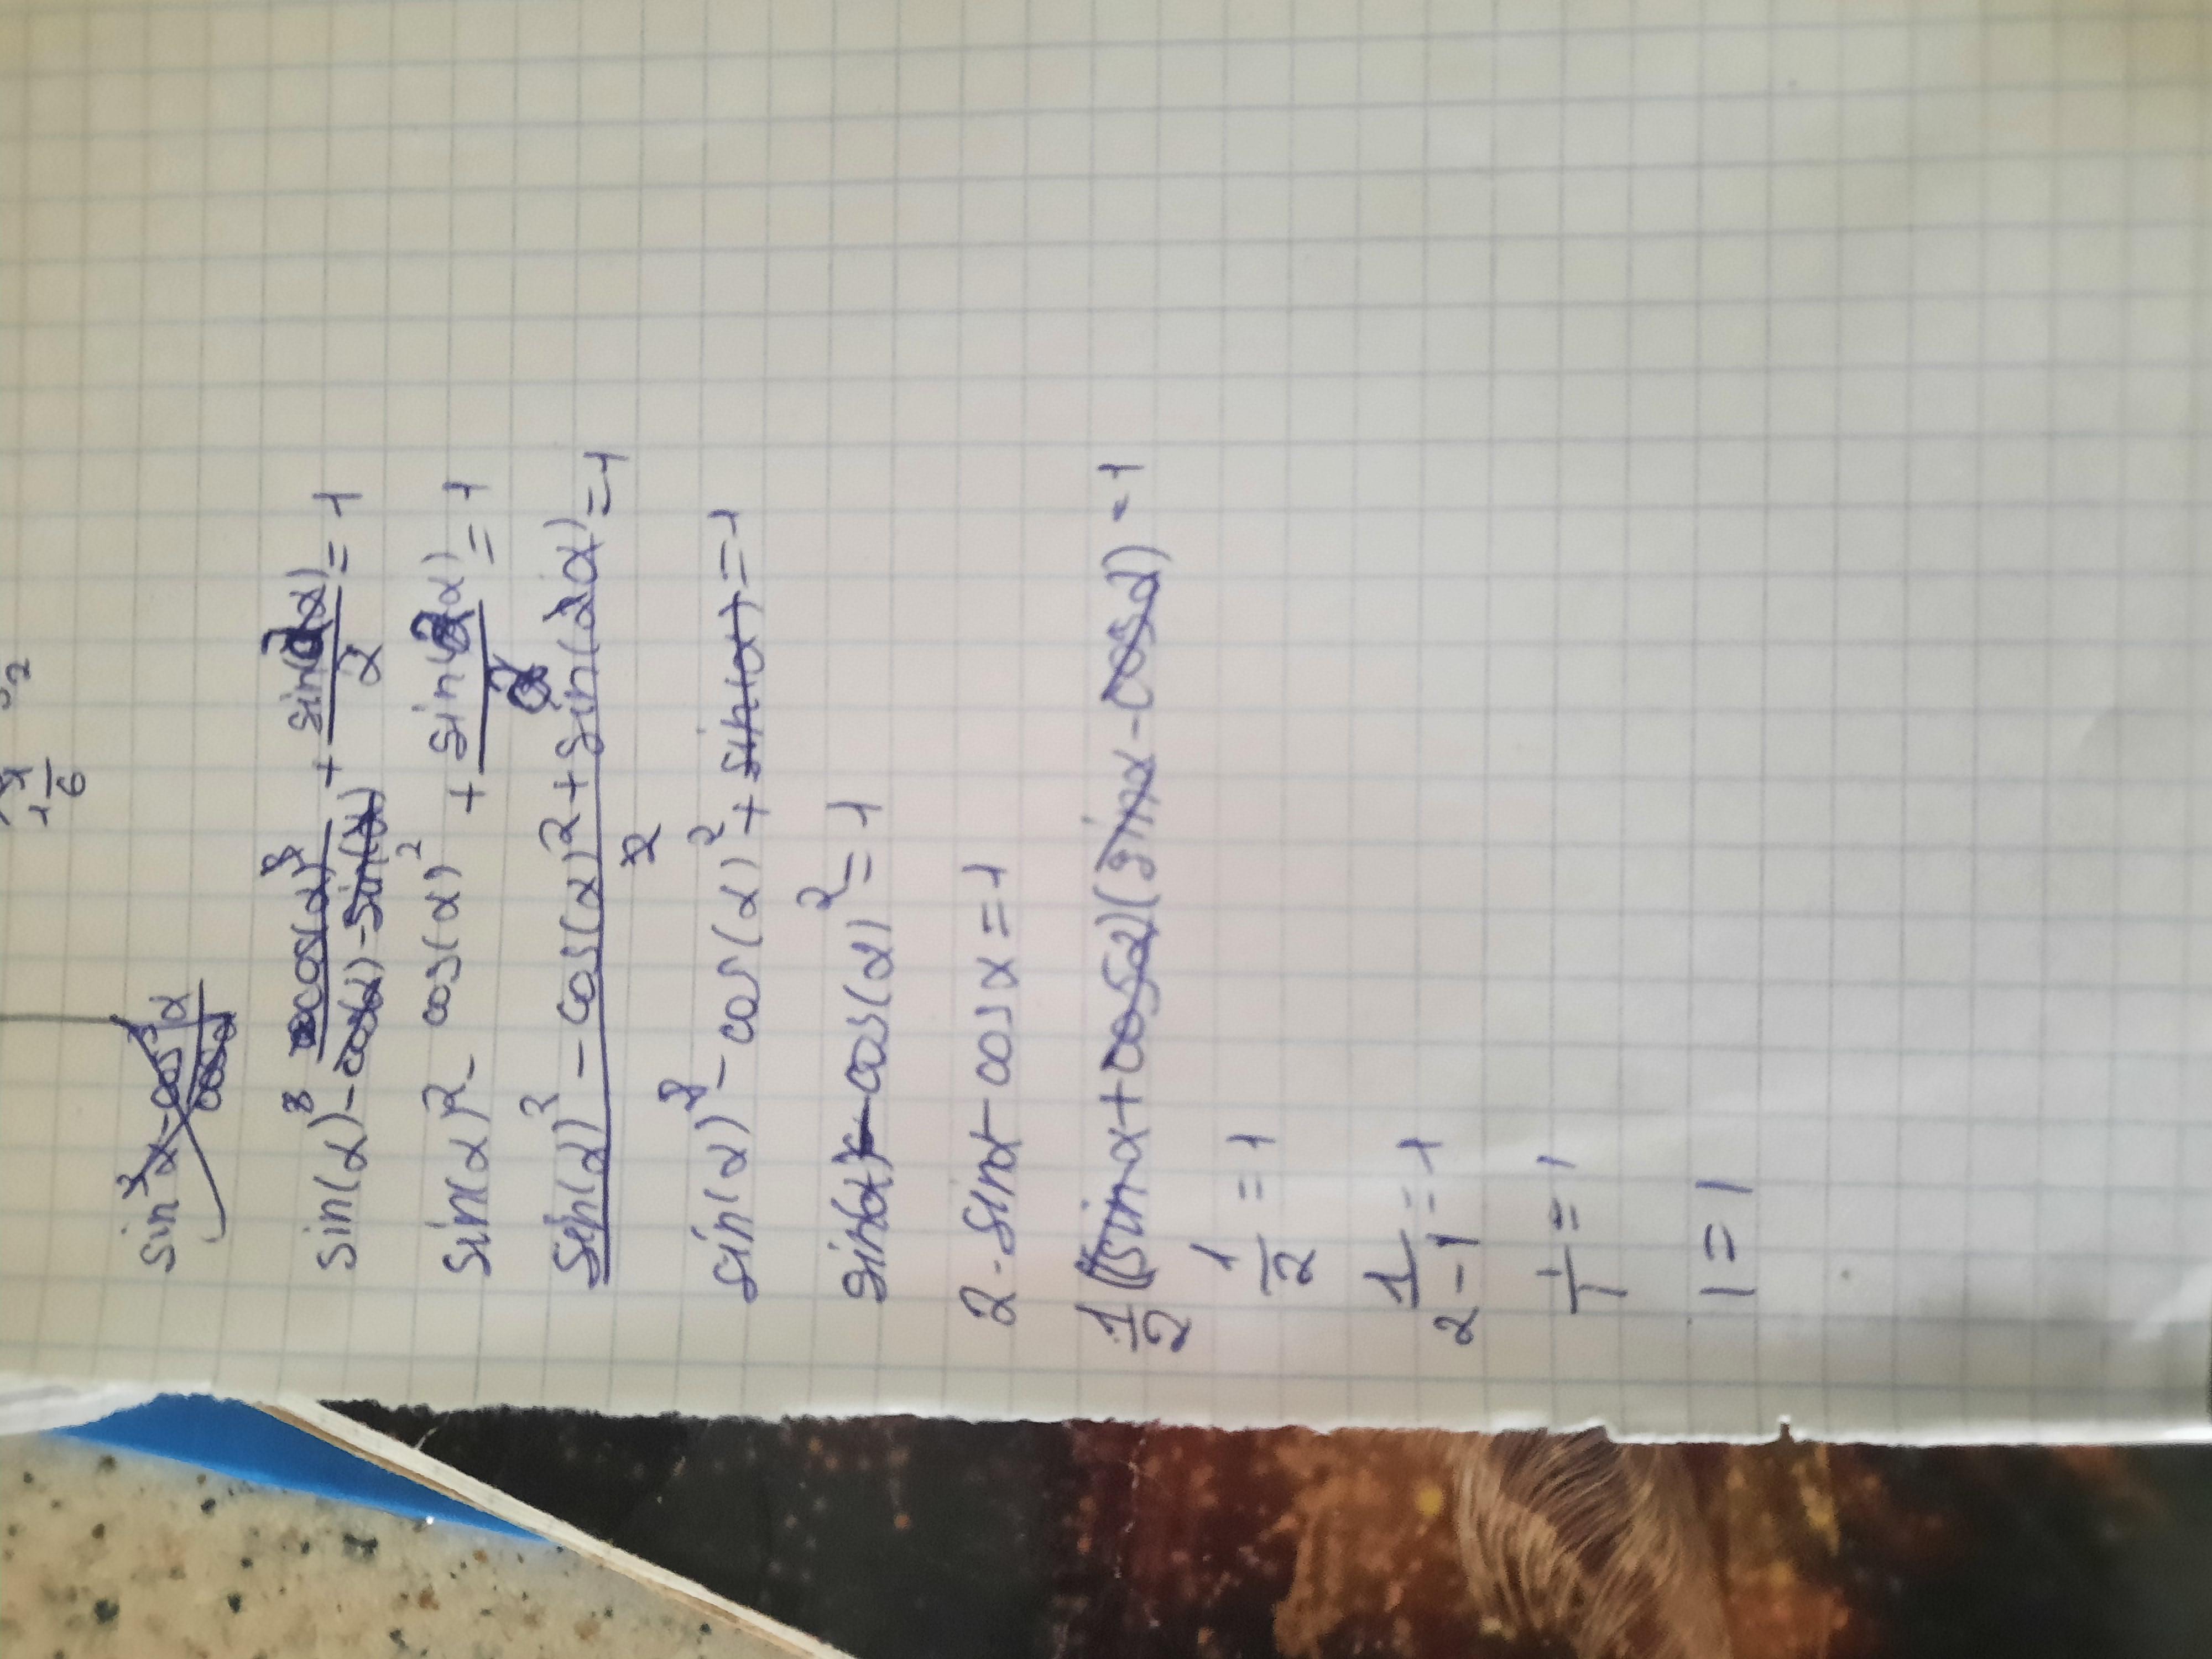 6
sin³α-cos³α
cosα
sin(α)³ - cos(α)³ / cos(α)-sin(α) + sin(2α)/2 = 1
sin(α)² - cos(α)² + sin(2α)/2 = 1
sin(α)² - cos(α)² + sin(2α) / 2 = 1
sin(α)² - cos(α)² + sin(α) = 1
sin(α) - cos(α)² = 1
2 · sinα - cosα = 1
1/2 (sinα + cosα)(sinα - cosα) = 1
1/2 = 1
1/2-1 = 1
1/1 = 1
1 = 1